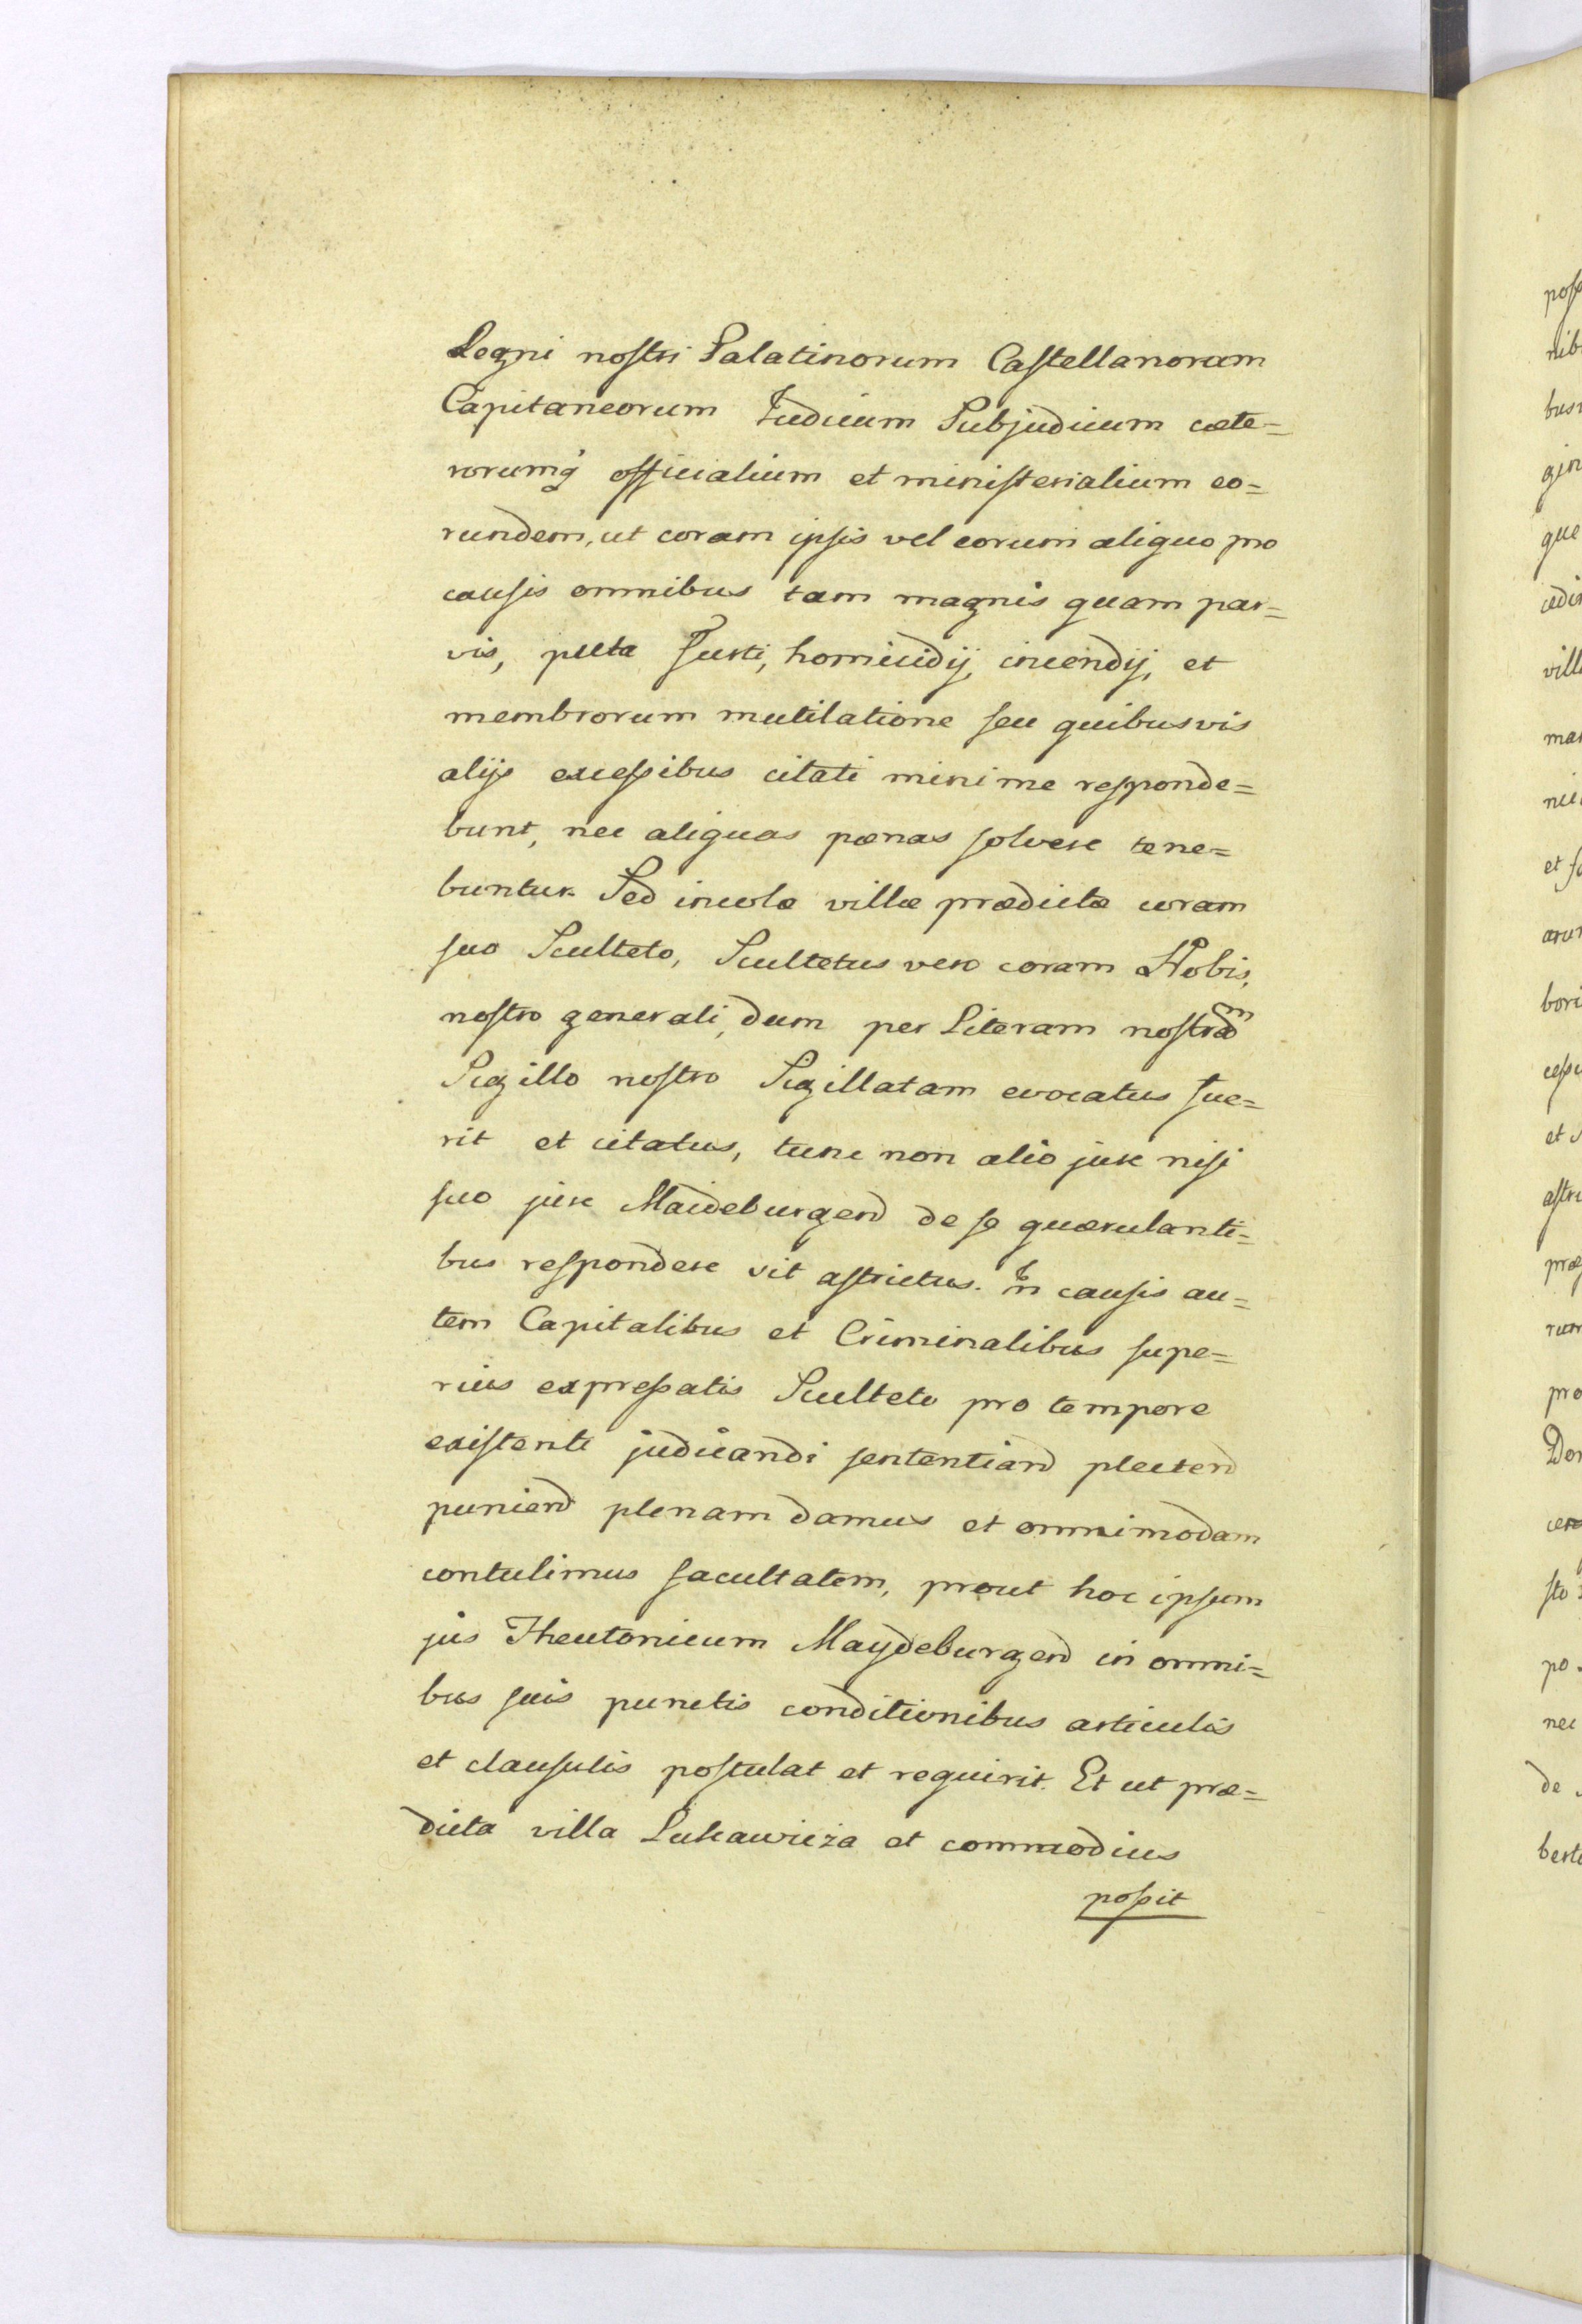 Regni nostri Palatinorum Castellanoram
Capitaneorum Iudicum Subjudicum cæte=
rorumq́ officialium et ministerialium eo=
rundem, ut coram ipsis vel eorum aliquo pro
causis omnibus tam magnis quam par=
vis, puta furti, homicidij, incendij, et
membrorum mutilatione seu quibusvis
alijs excessibus citati minime responde=
bunt, nec aliquas pœnas solvere tene=
buntur. Sed incolæ villæ prædictæ coram
suo Sculteto, Scultetus vero coram Nobis,
nostro generali, dum per Literam nostram
Sigillo nostro Sigillatam evocatus fue=
rit et citatus, tunc non alio jure nisi
suo jure Maideburgen de se quærulanti=
bus respondere sit astrictus. In causis au=
tem Capitalibus et Criminalibus supe=
rius expressatis Sculteto pro tempore
existente judicandi sententiand plecten
punien plenam damus et omnimodam
contulimus facultatem, prout hoc ipsum
jus Theutonicum Maydeburgen in omni=
bus suis punctis conditionibus articulis
et clausulis postulat et requirit. Et ut præ=
dicta villa Lukawicza et commodius
possit